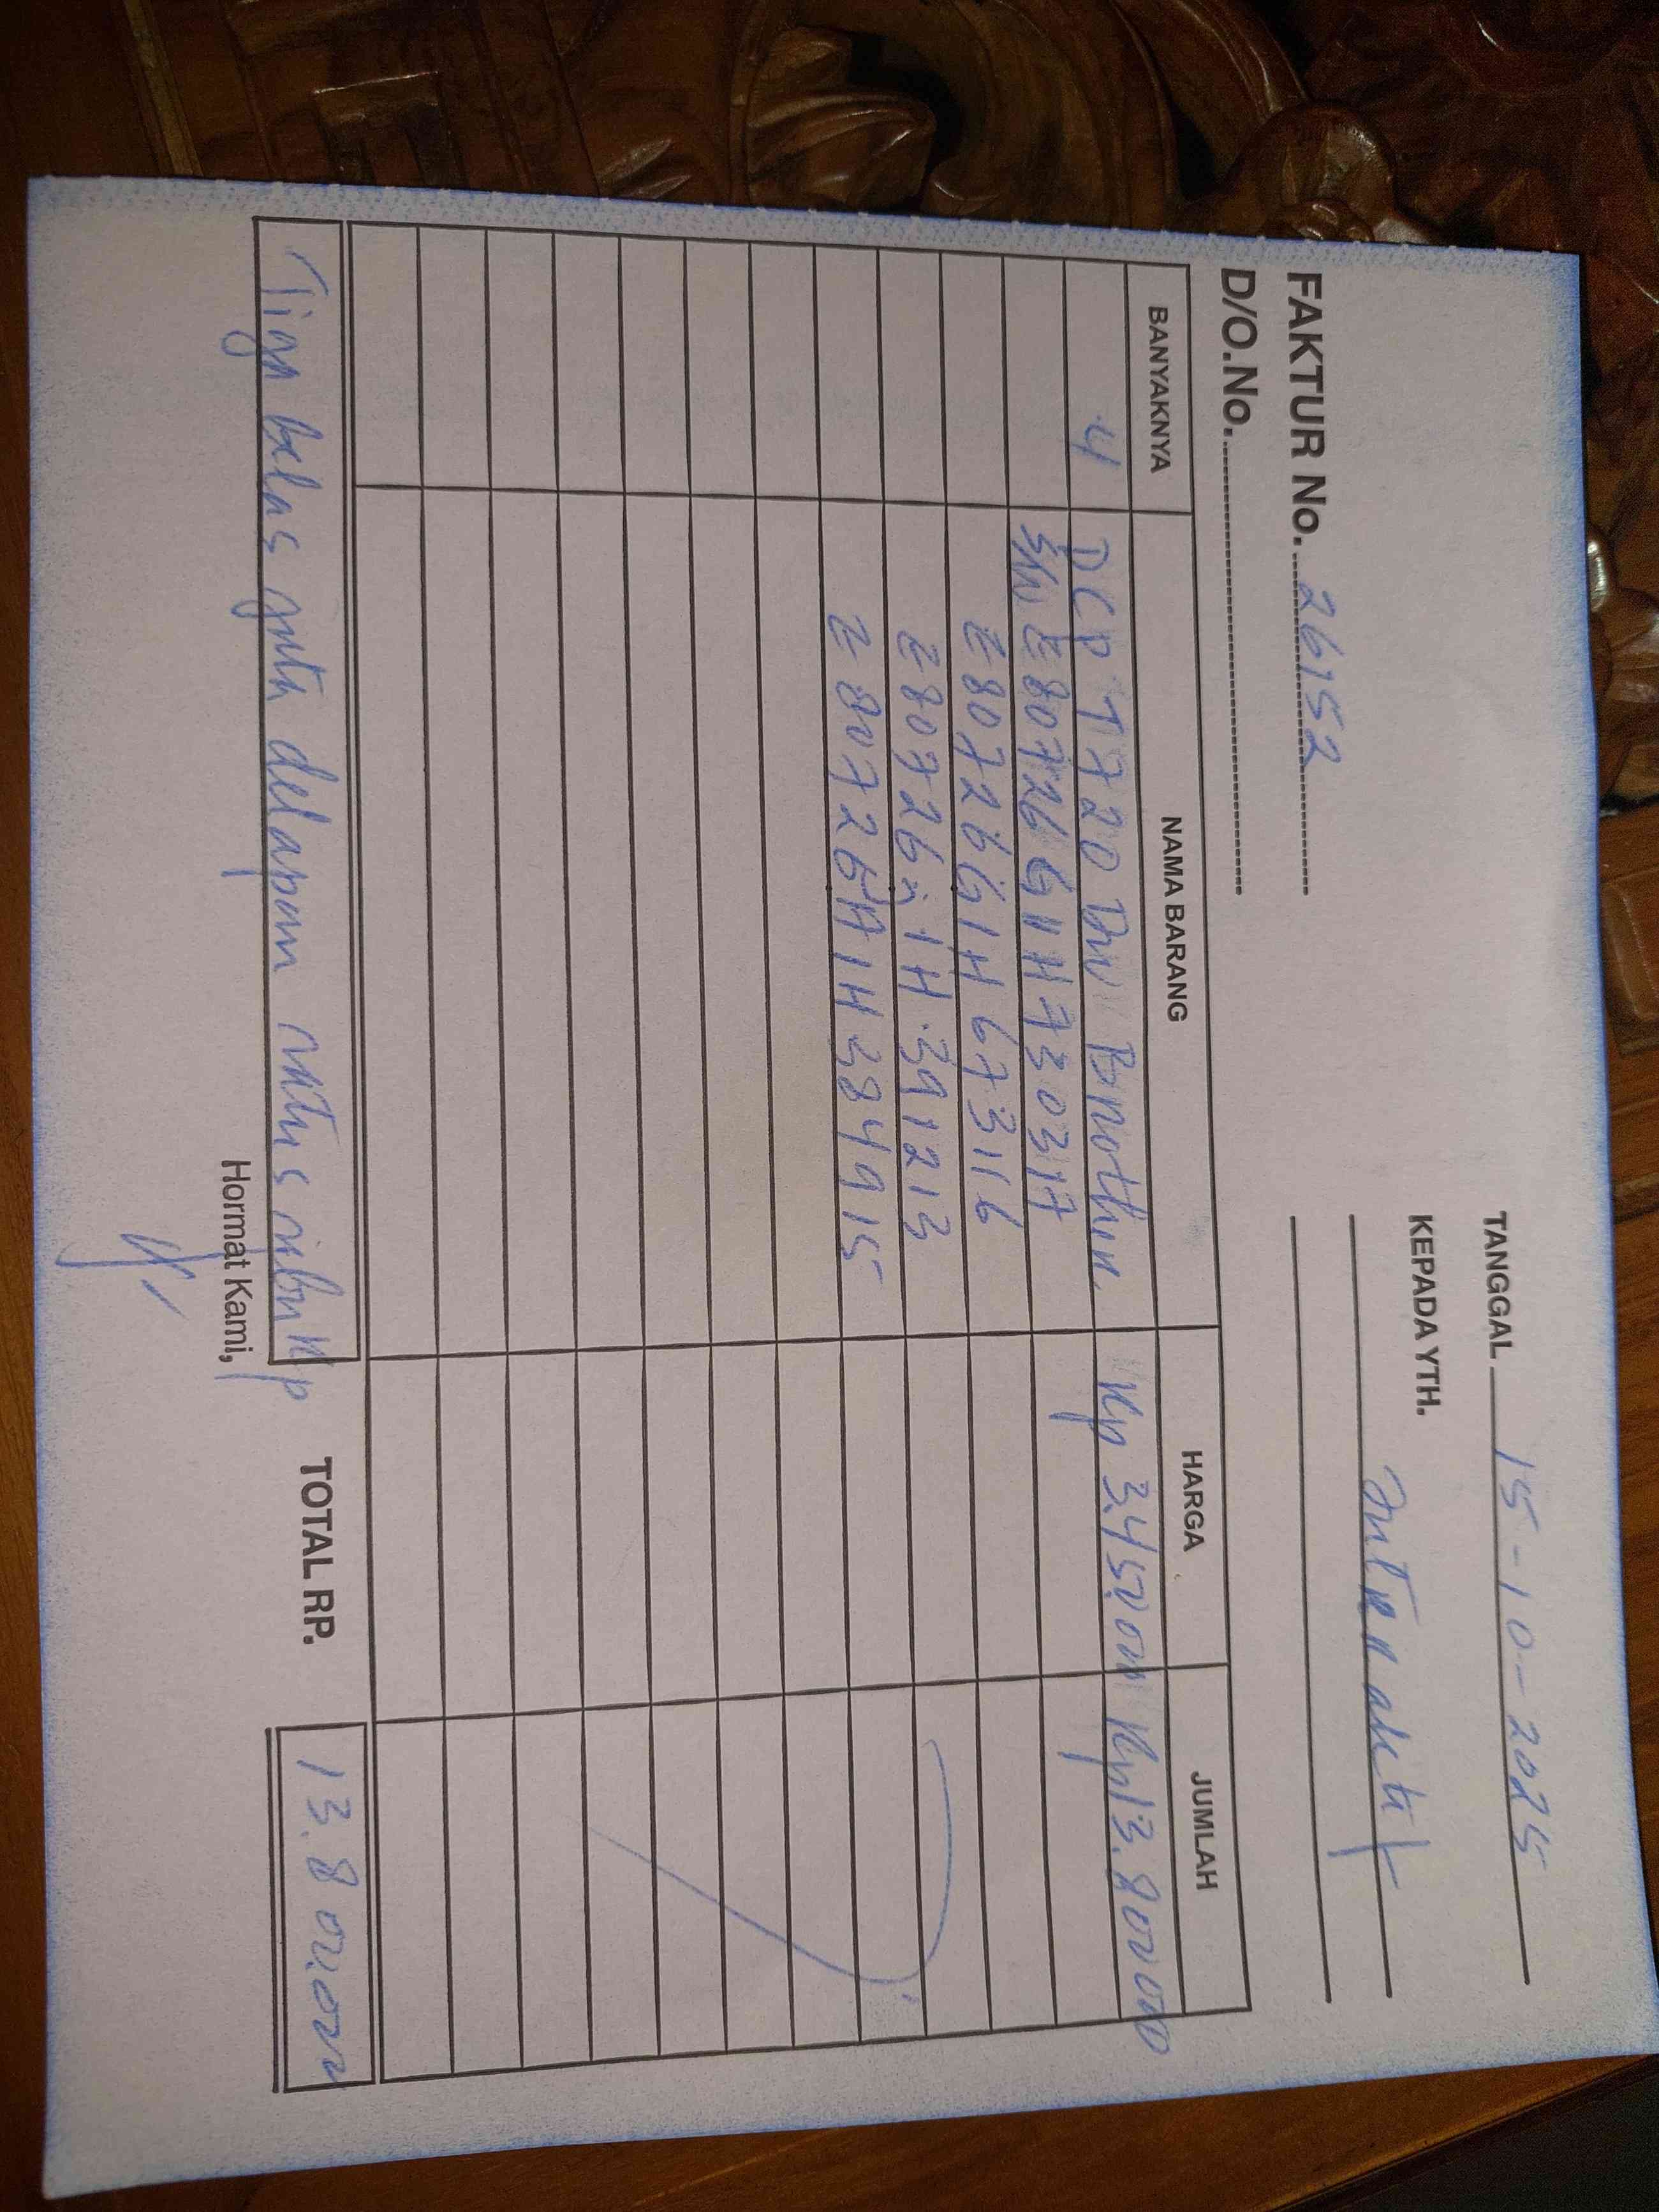 TANGGAL 15-10-2025
FAKTUR No. 26152
KEPADA YTH.
D/O.No.
BANYAKNYA NAMA BARANG HARGA JUMLAH
4 DCP T720 DW Brother. Rp 3.450.000 Rp 13.800.000
S/N E80726G1H730317
E80726G1H673116
E80726G1H391213
E80726H1H384915
Tiga belas juta delapan ratus ribu Rp TOTAL RP. 13.800.000
Hormat Kami,